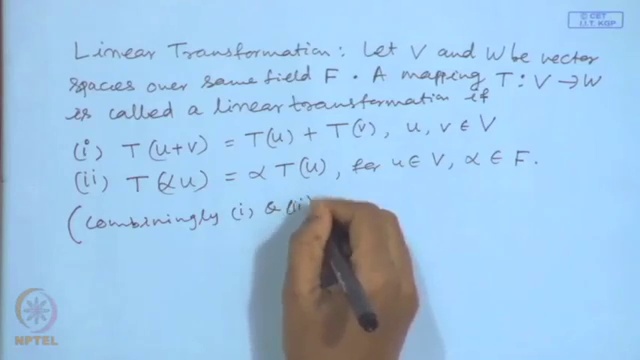 © CET
I.I.T. KGP
Linear Transformation: Let V and W be vector
spaces over same field F. A mapping T: V → W
is called a linear transformation if
(i) T(u+v) = T(u) + T(v), u, v ∈ V
(ii) T(αu) = α T(u), for u ∈ V, α ∈ F.
(Combiningly (i) & (ii)
NPTEL